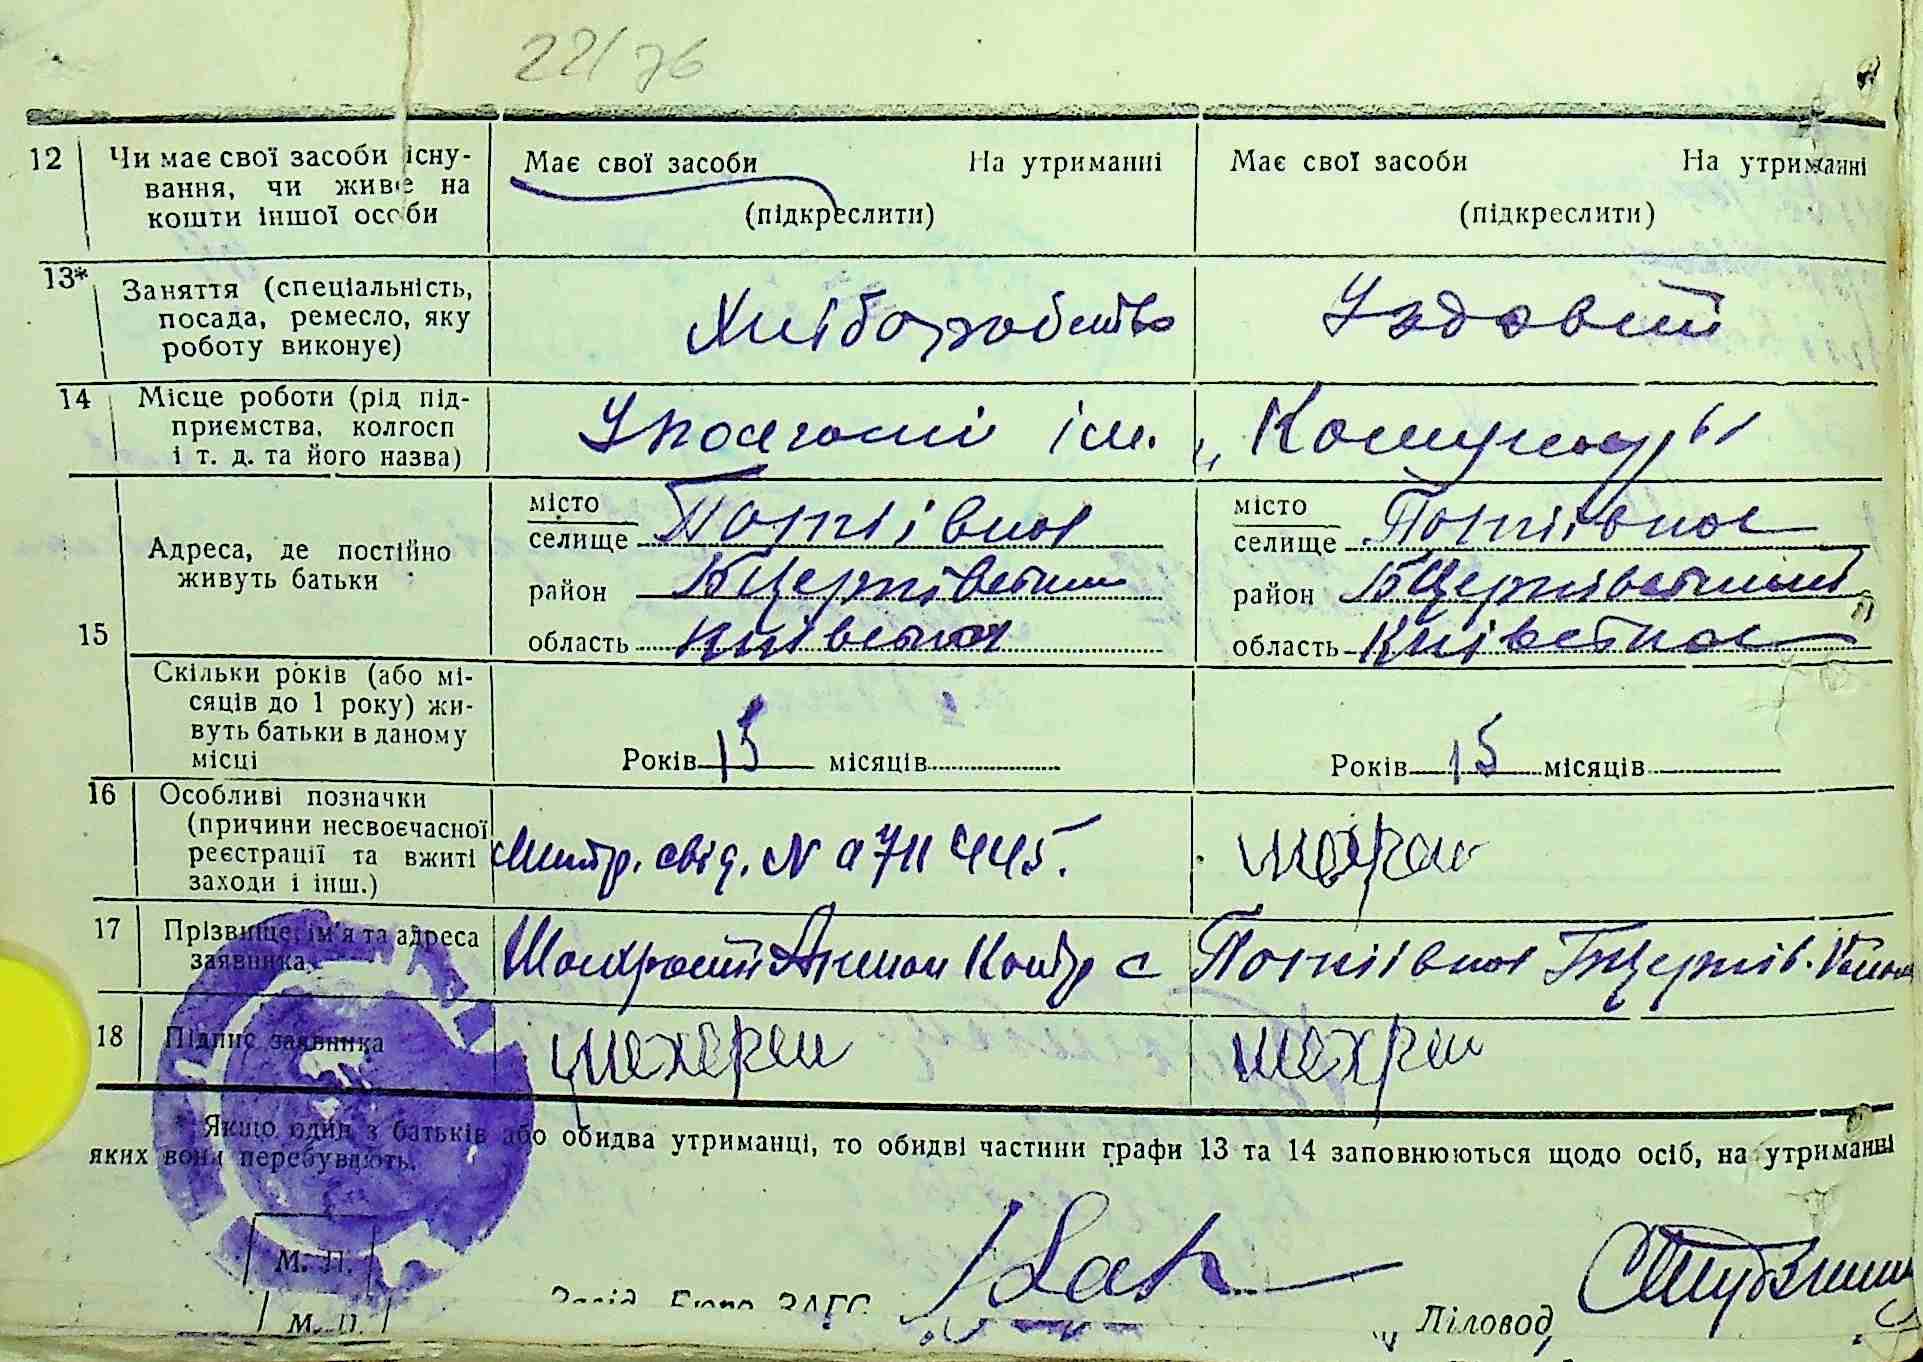 22/76
12 Чи має свої засоби існу-
вання, чи живе на
кошти іншої особи
Має свої засоби На утриманні
(підкреслити)
Має свої засоби На утриманні
(підкреслити)
13* Заняття (спеціальність,
посада, ремесло, яку
роботу виконує)
Хліборобство
Їздовий
14 Місце роботи (рід під-
приємства, колгосп
і т. д. та його назва)
У колгоспі ім. „Комунар"
15 Адреса, де постійно
живуть батьки
місто
селище Потіївка
район БЦерківський
область Київська
місто
селище Потіївка
район БЦерківський
область Київська
Скільки років (або мі-
сяців до 1 року) жи-
вуть батьки в даному
місці
Років 15 місяців
Років 15 місяців
16 Особливі позначки
(причини несвоєчасної
реєстрації та вжиті
заходи і інш.)
Метр. свід. N а 711445.
17 Прізвище, ім'я та адреса
заявника
с Потіївка БЦерків. Київськ
18 Підпис заявника
* Якщо один з батьків або обидва утриманці, то обидві частини графи 13 та 14 заповнюються щодо осіб, на утриманні
яких вони перебувають.
М. П.
Завід. Бюро ЗАГС
Діловод
М. П.